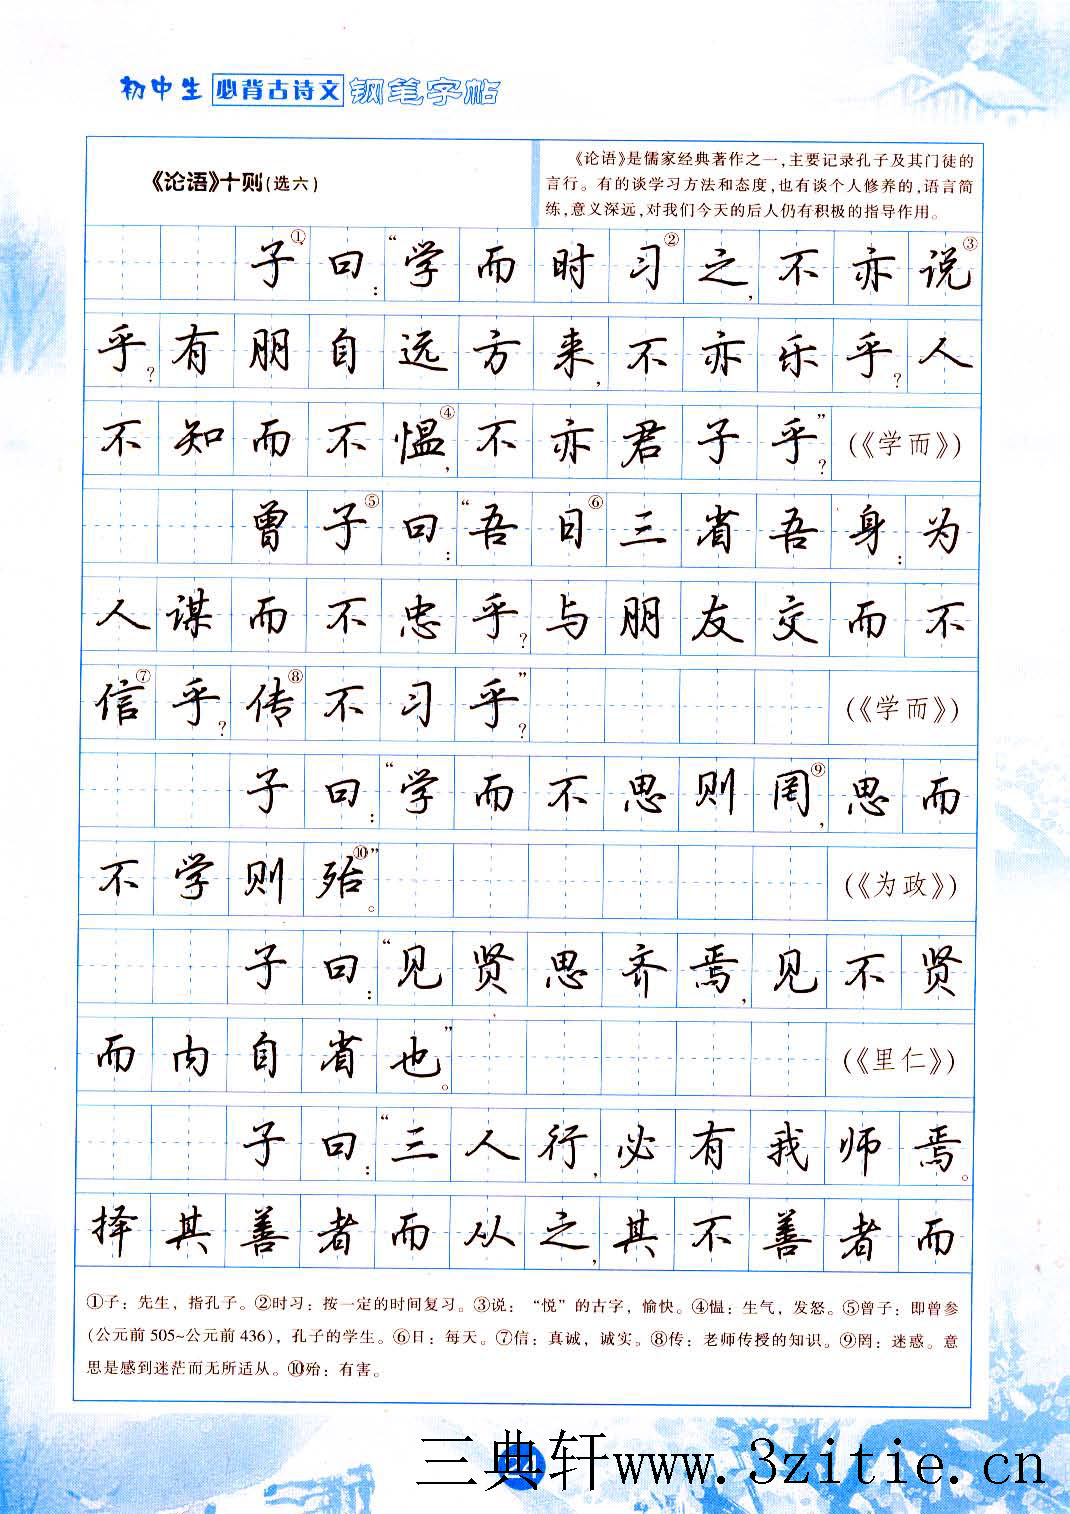 初中生 必背古诗文 钢笔字帖
《论语》十则(选六)
《论语》是儒家经典著作之一,主要记录孔子及其门徒的
言行。有的谈学习方法和态度,也有谈个人修养的,语言简
练,意义深远,对我们今天的后人仍有积极的指导作用。
子①曰:“学而时习②之,不亦说③
乎?有朋自远方来,不亦乐乎?人
不知而不愠④,不亦君子乎?”(《学而》)
曾子⑤曰:“吾日⑥三省吾身:为
人谋而不忠乎?与朋友交而不
信⑦乎?传⑧不习乎?”(《学而》)
子曰:“学而不思则罔⑨,思而
不学则殆⑩。”(《为政》)
子曰:“见贤思齐焉,见不贤
而内自省也。”(《里仁》)
子曰:“三人行,必有我师焉。
择其善者而从之,其不善者而
①子：先生，指孔子。②时习：按一定的时间复习。③说：“悦”的古字，愉快。④愠：生气，发怒。⑤曾子：即曾参
(公元前 505~公元前 436)，孔子的学生。⑥日：每天。⑦信：真诚，诚实。⑧传：老师传授的知识。⑨罔：迷惑。意
思是感到迷茫而无所适从。⑩殆：有害。
三典轩www.3zitie.cn